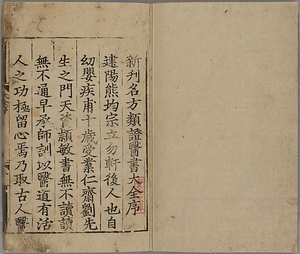 新刋名方類證醫書大全序
建陽熊均宗立勿軒後人也自
幼嬰疾甫十歲受業仁齋劉先
生之門天資頴敏書無不讀讀
無不通早承師訓以醫道有活
人之功極留心焉乃取古人醫